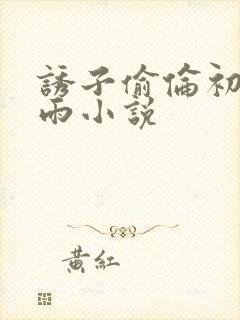 誘子偷倫初
雨小說
黃紅